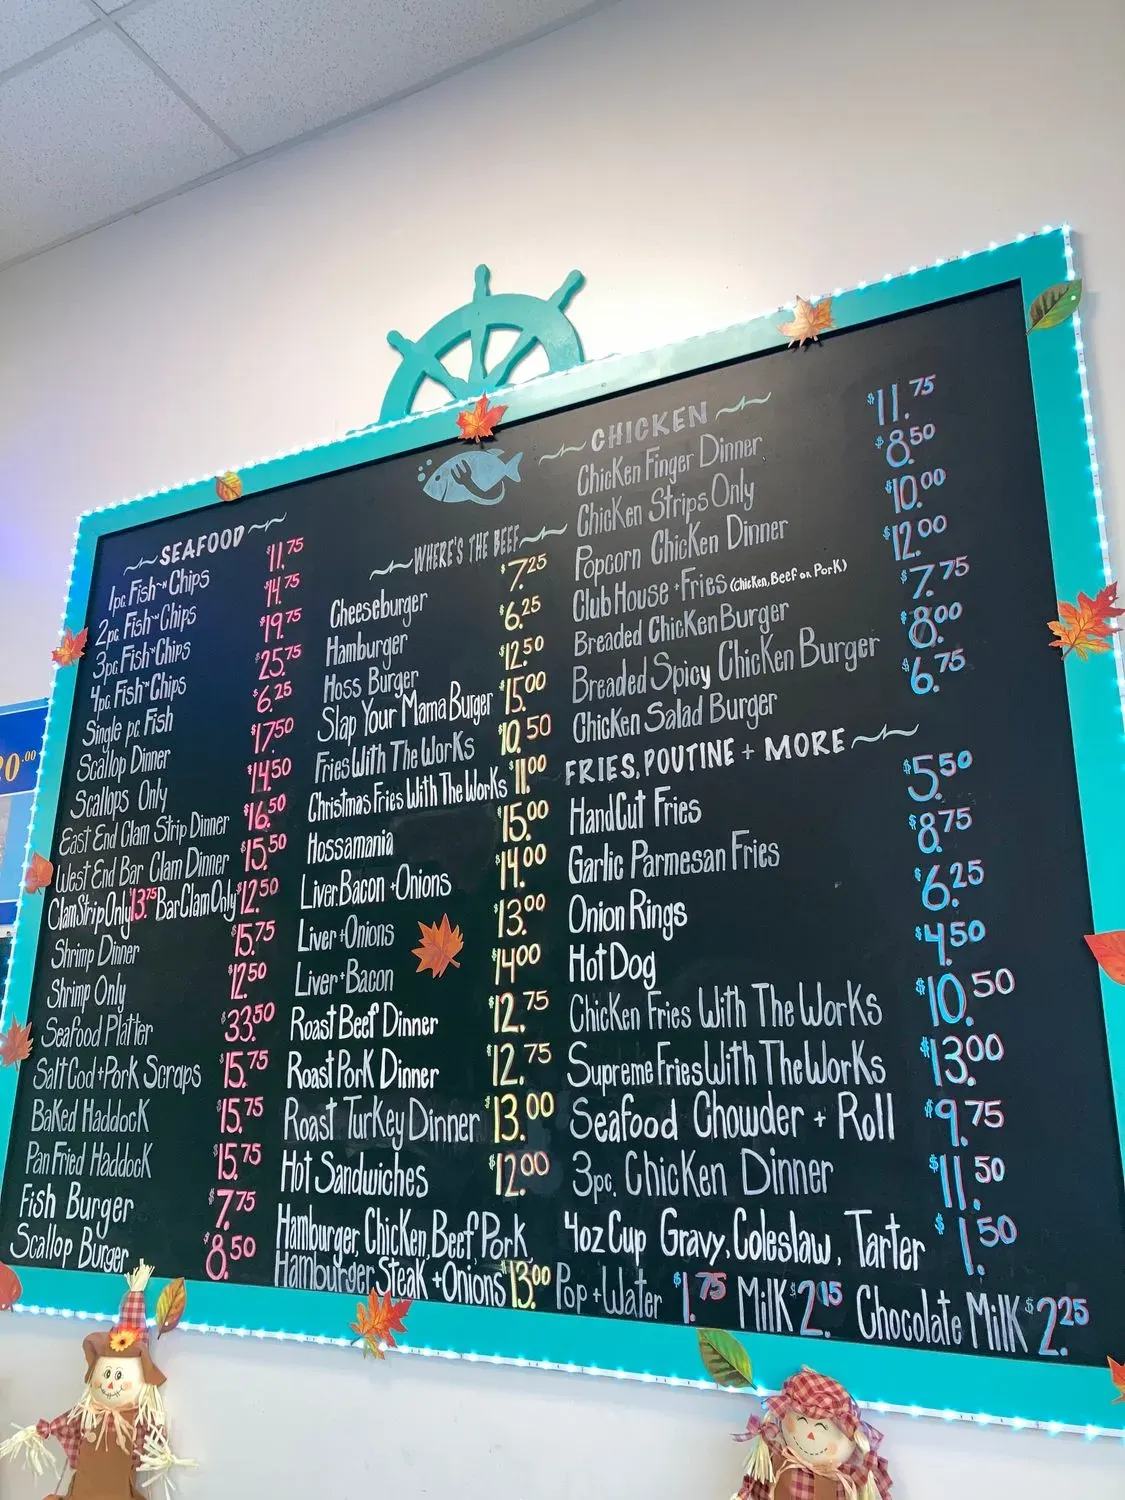 SEAFOOD
1pc. Fish~n Chips $11.75
2pc Fish~n Chips $14.75
3pc Fish~n Chips $19.75
4pc Fish~n Chips $25.75
Single pc Fish $6.25
Scallop Dinner $17.50
Scallops Only $14.50
East End Clam Strip Dinner $16.50
West End Bar Clam Dinner $15.50
Clam Strip Only $13.75 Bar Clam Only $12.50
Shrimp Dinner $15.75
Shrimp Only $12.50
Seafood Platter $33.50
Salt Cod + Pork Scraps $15.75
Baked Haddock $15.75
Pan Fried Haddock $15.75
Fish Burger $7.75
Scallop Burger $8.50
WHERE'S THE BEEF
Cheeseburger $7.25
Hamburger $6.25
Hoss Burger $12.50
Slap Your Mama Burger $15.00
Fries With The Works $10.50
Christmas Fries With The Works $11.00
Hossamania $15.00
Liver, Bacon + Onions $14.00
Liver + Onions $13.00
Liver + Bacon $14.00
Roast Beef Dinner $12.75
Roast Pork Dinner $12.75
Roast Turkey Dinner $13.00
Hot Sandwiches $12.00
Hamburger, Chicken, Beef, Pork
Hamburger Steak + Onions $13.00
CHICKEN
Chicken Finger Dinner $11.75
Chicken Strips Only $8.50
Popcorn Chicken Dinner $10.00
Club House + Fries (Chicken, Beef or Pork) $12.00
Breaded Chicken Burger $7.75
Breaded Spicy Chicken Burger $8.00
Chicken Salad Burger $6.75
FRIES, POUTINE + MORE
Hand Cut Fries $5.50
Garlic Parmesan Fries $8.75
Onion Rings $6.25
Hot Dog $4.50
Chicken Fries With The Works $10.50
Supreme Fries With The Works $13.00
Seafood Chowder + Roll $9.75
3pc. Chicken Dinner $11.50
4oz Cup Gravy, Coleslaw, Tarter $1.50
Pop + Water $1.75 Milk $2.15 Chocolate Milk $2.25